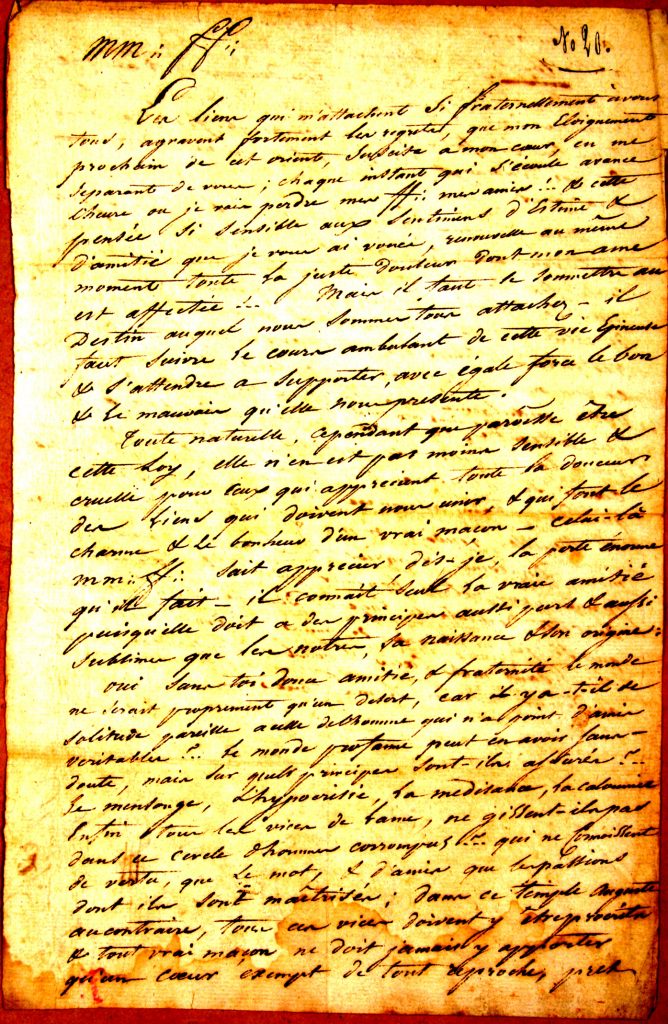 mm∴ ff∴
No 20.
Les liens qui m'attachent si fraternellement à vous
tous, agravent fortement les regrets, que mon Eloignement
prochain de cet orient, suscite a mon cœur, en me
separant de vous ; chaque instant qui s'écoule avance
l'heure ou je vais perdre mes ff∴ mes amis !.. & cette
pensée si sensible aux sentimens d'Estime &
d'amitié que je vous ai voués, renouvelle au même
moment toute la juste douleur dont mon ame
est affectée !.. Mais il faut se soumettre au
Destin auquel nous sommes tous attachés - il
faut suivre le cours ambulant de cette vie Epineuse
& s'attendre a supporter, avec égale force le bon
& le mauvais qu'elle nous presente.
Toute naturelle, cependant que paroisse être
cette Loy, elle n'en est pas moins sensible &
cruelle pour ceux qui apprecient toute la douceur
des Liens qui doivent nous unir & qui font le
charme & le bonheur d'un vrai maçon - celui-là
mm∴ ff∴ sait apprecier dis-je, la perte énorme
qu'il fait - il connait seul la vraie amitié
puisqu'elle doit a des principes aussi purs & aussi
sublimes que les notres, sa naissance & son origine :
oui sans toi douce amitié, & fraternité le monde
ne serait proprement qu'un desert, car il y a-t-il de
solitude pareille a celle de l'homme qui n'a point d'amis
veritables ?.. Le monde profane peut en avoir sans-
doute, mais sur quels principes sont-ils assurés ?..
Le mensonge, L'hypocrisie, la medisance, la calomnie
Enfin tous les vices de l'ame, ne gissent-ils pas
dans ce cercle d'hommes corrompus ?.. qui ne Connoissent
de vertu, que le mot, & d'amis que les passions
dont ils sont maîtrisés ; dans ce temple Auguste
au contraire, tous ces vices doivent y être proscrits
& tout vrai maçon ne doit jamais y apporter
qu'un cœur exempt de tout reproche, pret